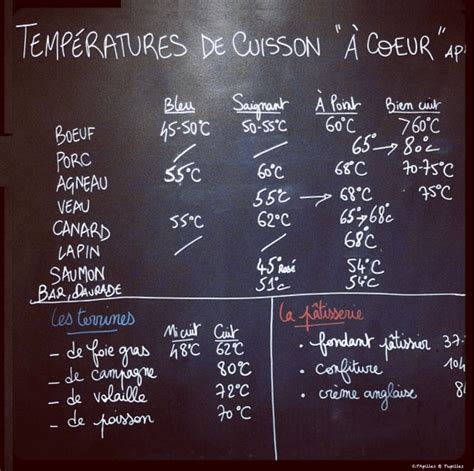 TEMPÉRATURES DE CUISSON "À COEUR" AP
Bleu Saignant À Point Bien cuit
BOEUF 45-50°C 50-55°C 60°C >60°C
PORC / / 65 → 80°C
AGNEAU 55°C 60°C 68°C 70-75°C
VEAU 55°C → 68°C 75°C
CANARD 55°C 62°C 65→68°C
LAPIN / / 68°C
SAUMON 45° Rosé 54°C
BAR, DAURADE 51°C 54°C
Les terrines
Mi cuit Cuit
- de foie gras 48°C 62°C
- de campagne 80°C
- de volaille 72°C
- de poisson 70°C
La pâtisserie
• fondant pâtissier 37.
• confiture 104
• crème anglaise 8
©Papilles & Pupilles